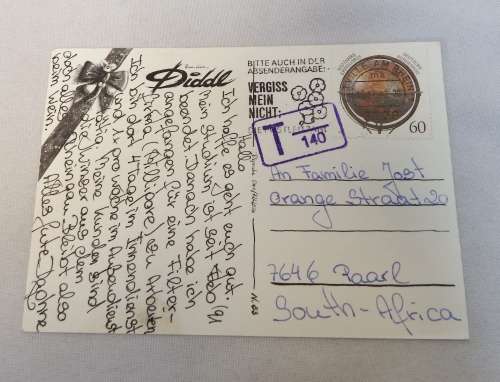 Diddl
Hallo
Ich hoffe es geht euch gut.
Mein Studium ist seit Feb '91
beendet. Danach habe ich
angefangen für eine Filter-
firma (Millipore) zu arbeiten
Ich bin dort 4 Tage im Innendienst
und 1x pro woche im Außendienst
tätig. Meine Kunden sind
die Winzer aus dem
Rheingau. Bleibt also
oder alles
beim Wein.
Alles Gute Daphne
BITTE AUCH IN DER
ABSENDERANGABE:
VERGISS
MEIN
NICHT:
DIE POSTLEITZAHL
60
T 140
An Familie Jost
Orange Straat 20
7646 Paarl
South-Africa